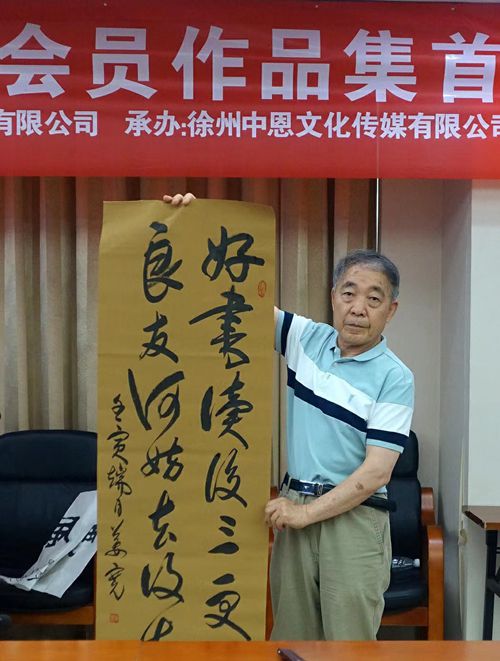 会员作品集首
有限公司 承办:徐州中恩文化传媒有限公司
好書读後三更
良友何妨去後
壬寅端月